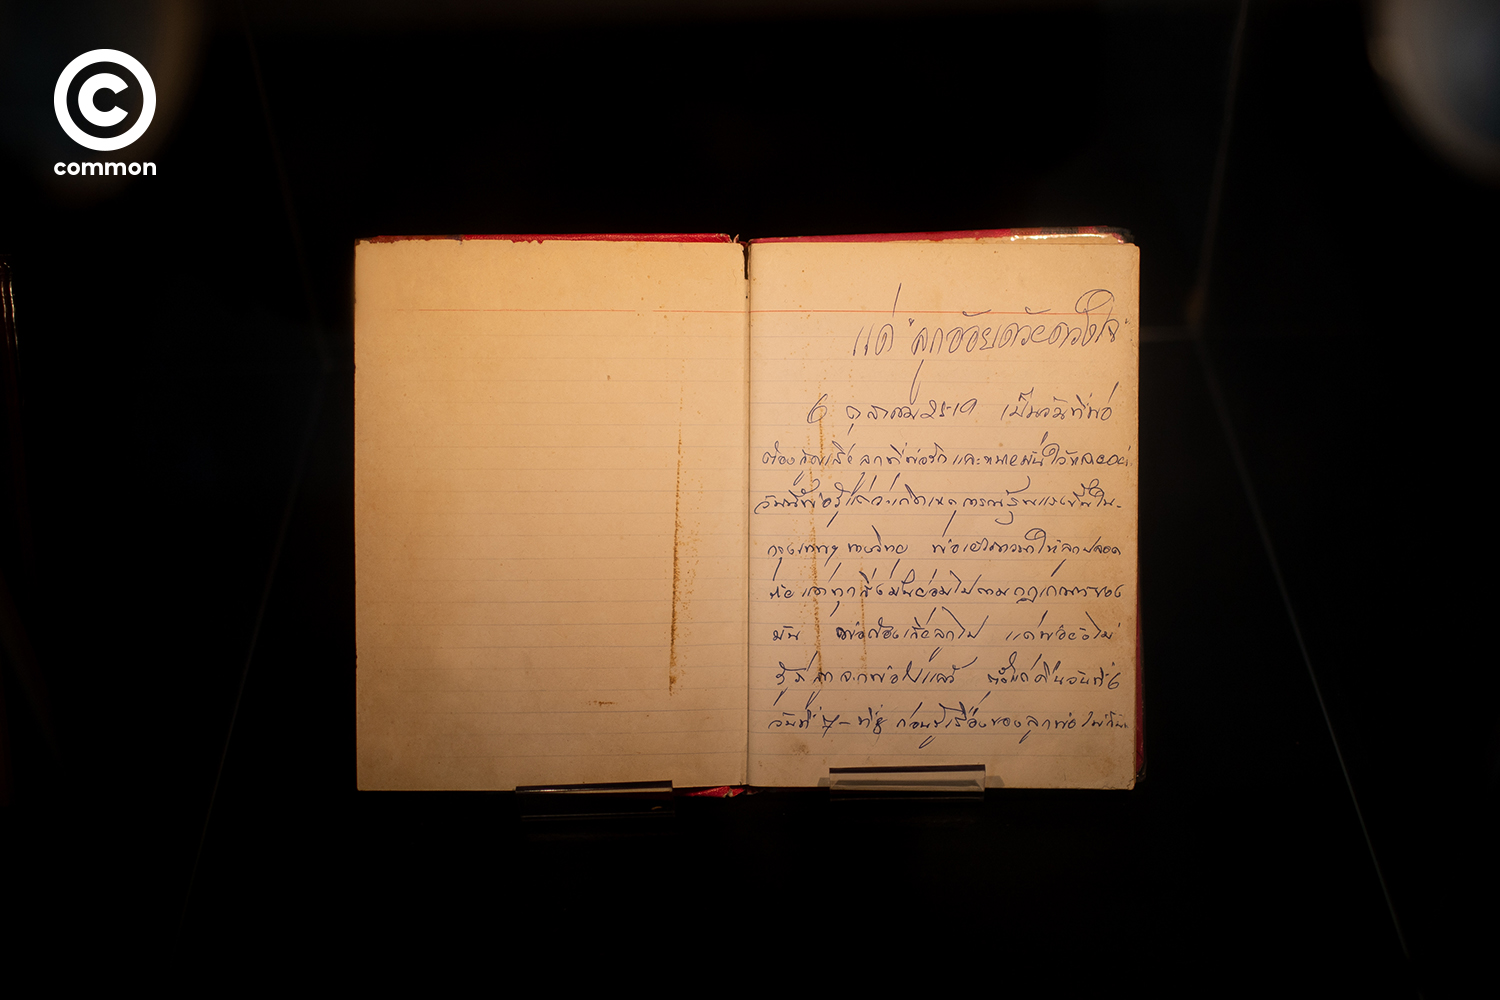 common
แด่ "ลูกจ้อยด้วยดวงใจ"
6 ตุลาคม 2519 เป็นวันที่พ่อ
ต้องสูญเสีย ลูกที่พ่อรัก และหมายมั่นไว้
วันนี้พ่อรู้แต่ว่าเกิดเหตุการณ์รุนแรงขึ้นใน
กรุงเทพฯ ทางวิทยุ พ่อ ให้ลูกปลอด
ภัย แต่ทุกสิ่งมันย่อมไปตามกฎเกณฑ์ของ
มัน พ่อต้องเสียลูกไป แต่พ่อยังไม่
รู้ว่าลูกจากพ่อไปแล้ว ตั้งแต่คืนวันที่ 6
วันที่ 7 - ที่ 8 ก่อนรู้เรื่องของลูกพ่อ